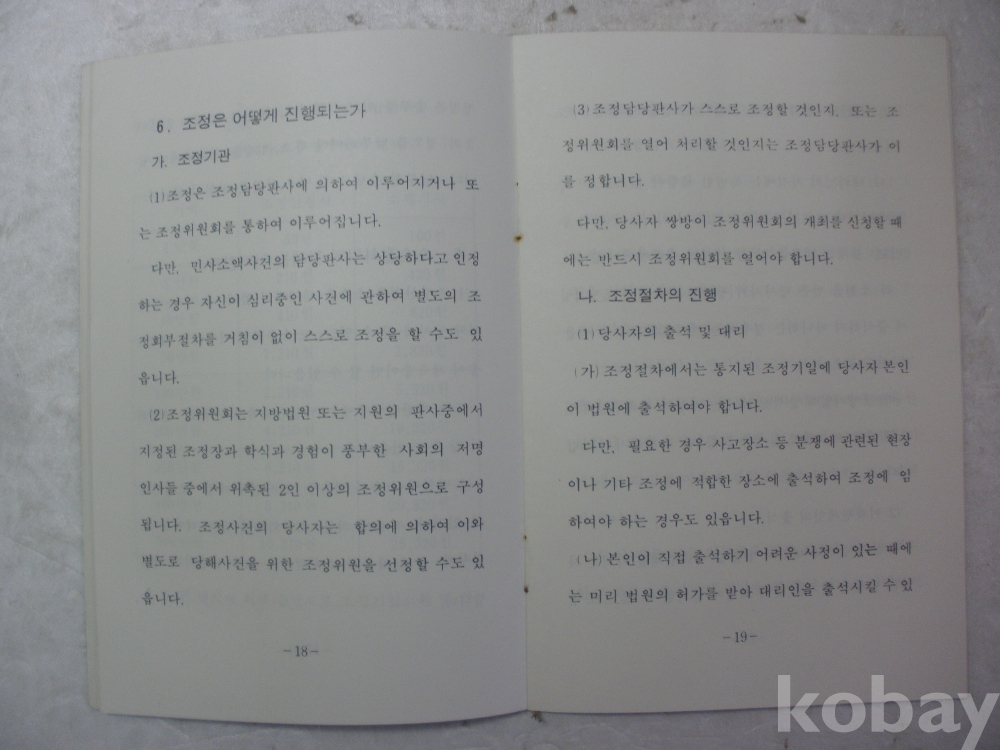 6. 조정은 어떻게 진행되는가
가. 조정기관
(1)조정은 조정담당판사에 의하여 이루어지거나 또
는 조정위원회를 통하여 이루어집니다.
다만, 민사소액사건의 담당판사는 상당하다고 인정
하는 경우 자신이 심리중인 사건에 관하여 별도의 조
정회부절차를 거침이 없이 스스로 조정을 할 수도 있
읍니다.
(2)조정위원회는 지방법원 또는 지원의 판사중에서
지정된 조정장과 학식과 경험이 풍부한 사회의 저명
인사들 중에서 위촉된 2인 이상의 조정위원으로 구성
됩니다. 조정사건의 당사자는 합의에 의하여 이와
별도로 당해사건을 위한 조정위원을 선정할 수도 있
읍니다.
-18-
(3)조정담당판사가 스스로 조정할 것인지, 또는 조
정위원회를 열어 처리할 것인지는 조정담당판사가 이
를 정합니다.
다만, 당사자 쌍방이 조정위원회의 개최를 신청할 때
에는 반드시 조정위원회를 열어야 합니다.
나. 조정절차의 진행
(1)당사자의 출석 및 대리
(가)조정절차에서는 통지된 조정기일에 당사자 본인
이 법원에 출석하여야 합니다.
다만, 필요한 경우 사고장소 등 분쟁에 관련된 현장
이나 기타 조정에 적합한 장소에 출석하여 조정에 임
하여야 하는 경우도 있읍니다.
(나)본인이 직접 출석하기 어려운 사정이 있는 때에
는 미리 법원의 허가를 받아 대리인을 출석시킬 수 있
-19-
kobay